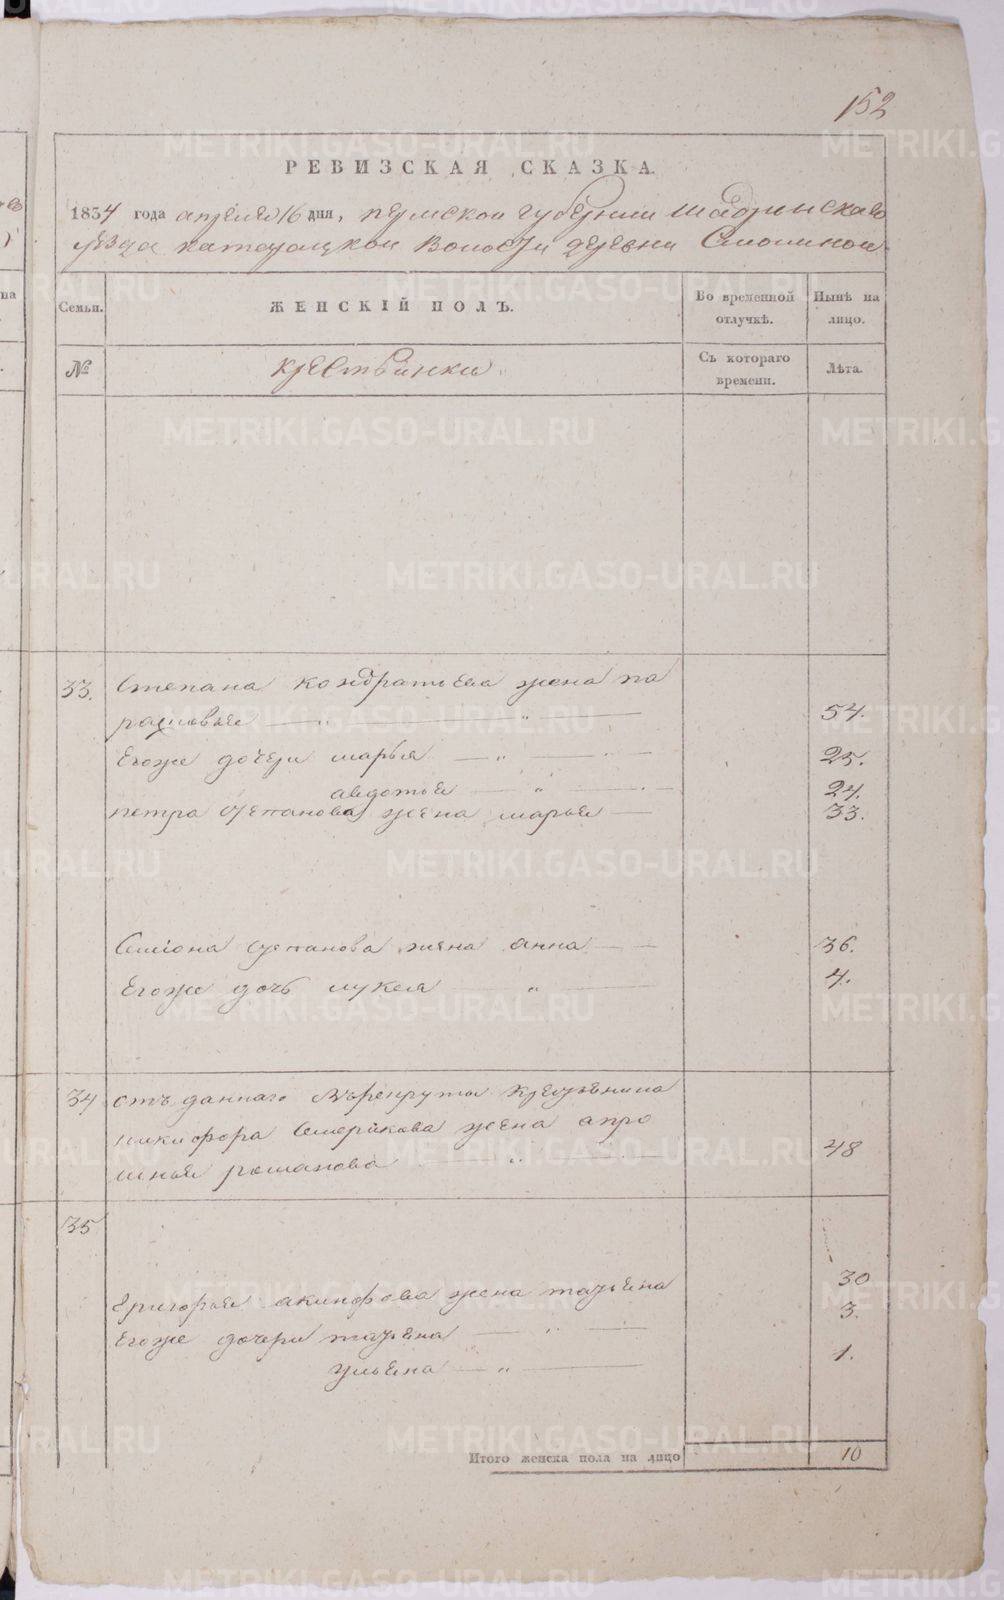 152
РЕВИЗСКАЯ СКАЗКА.
1834 года апреля 16 дня, пермской губернии шадринскаго
уезда катайской Волости деревни
Семьи. ЖЕНСКІЙ ПОЛЪ. Во временной отлучкѣ. Нынѣ на лицо.
№ крестьянки Съ котораго времени. Лѣта.
33. Степана кондратьева жена па
расковья — „ — „ — 54.
Егоже дочери марья — „ — 25.
авдотья — „ — 24.
петра степанова жена марья — 33.
Семіона степанова жена анна — 36.
Егоже дочь лукея — „ — 4.
34 отъ даннаго Врекруты крестьянина
никифора Семерикова жена апро
синья романова — „ — 48
35
григорья акинфова жена татьяна 30
Егоже дочери татьяна — „ — 3.
ульяна — „ — 1.
Итого женска пола на лицо 10
METRIKI.GASO-URAL.RU